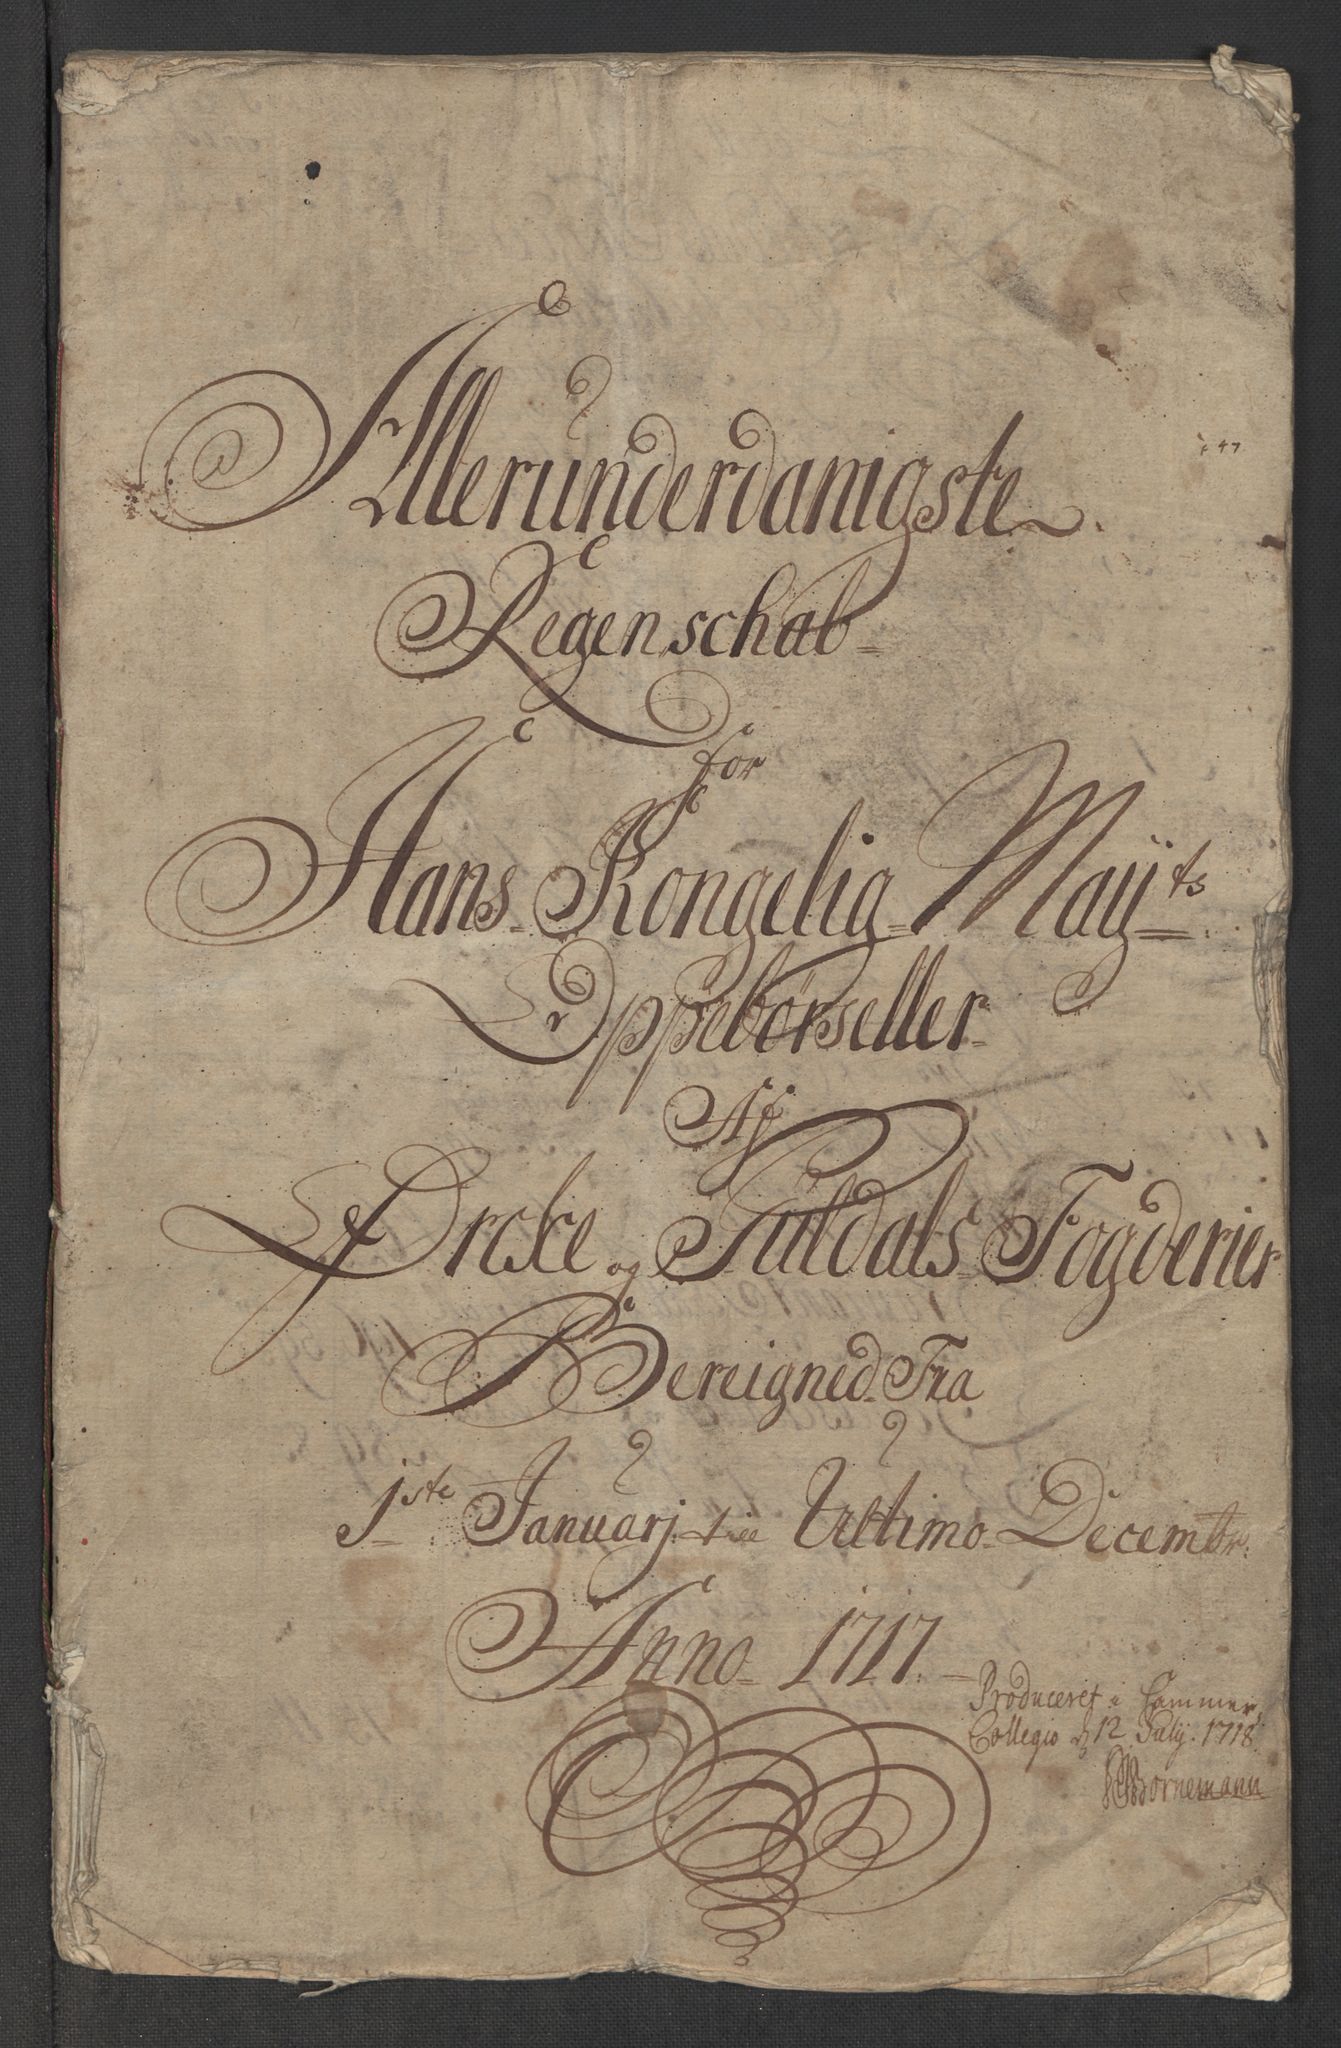 Allerunderdanigste
Regenschab
for
Hans Kongelig Mayts
Oppebørseller
Af
Ørcke og Guldals Fogderier
Bereigned Fra
1ste Januarj till Ultimo Decembr:
Anno 1717.
Produceret i Cammer
Collegio d 12 July 1718
Bornemann